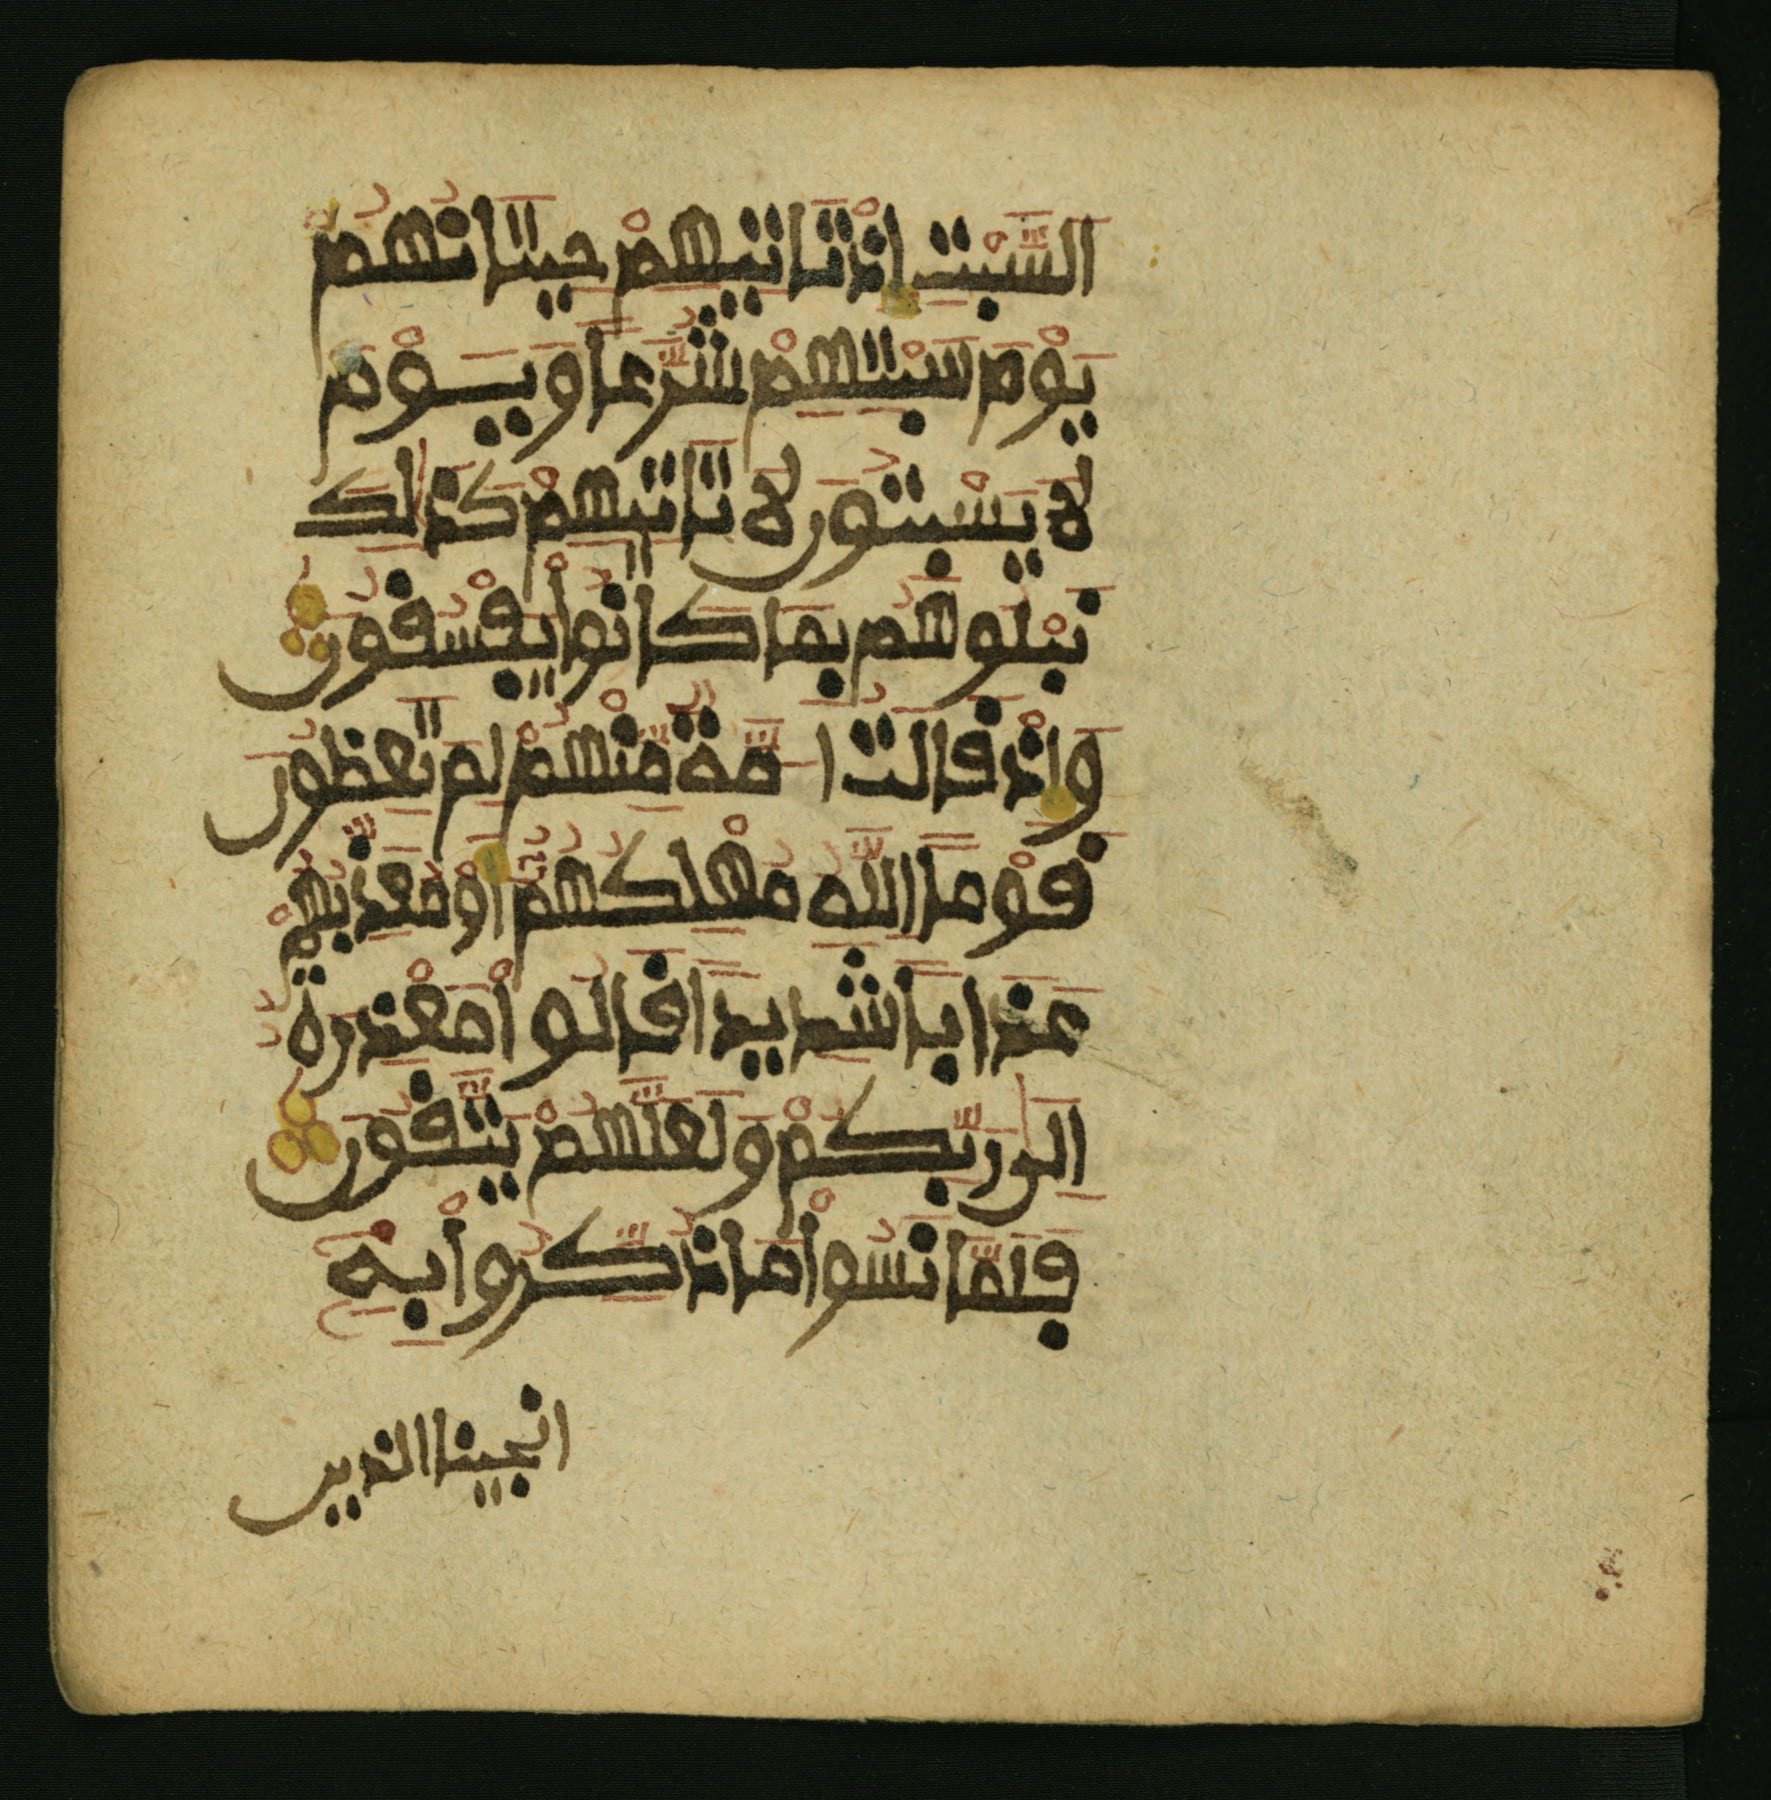 السَّبْتِ إِذْ تَاتِيهِمْ حِيتَانُهُمْ
يَوْمَ سَبْتِهِمْ شُرَّعاً وَيَوْمَ
لَا يَسْبِتُونَ لَا تَاتِيهِمْ كَذَٰلِكَ
نَبْلُوهُم بِمَا كَانُواْ يَفْسُقُونَ
وَإِذْ قَالَتُ امَّةٌ مِّنْهُمْ لِمَ تَعِظُونَ
قَوْماً اللَّهُ مُهْلِكُهُمُ أَوْ مُعَذِّبُهُمْ
عَذَاباً شَدِيداً قَالُواْ مَعْذِرَةٌ
إِلَىٰ رَبِّكُمْ وَلَعَلَّهُمْ يَتَّقُونَ
فَلَمَّا نَسُواْ مَا ذُكِّرُواْ بِهِ
انجينا الذين